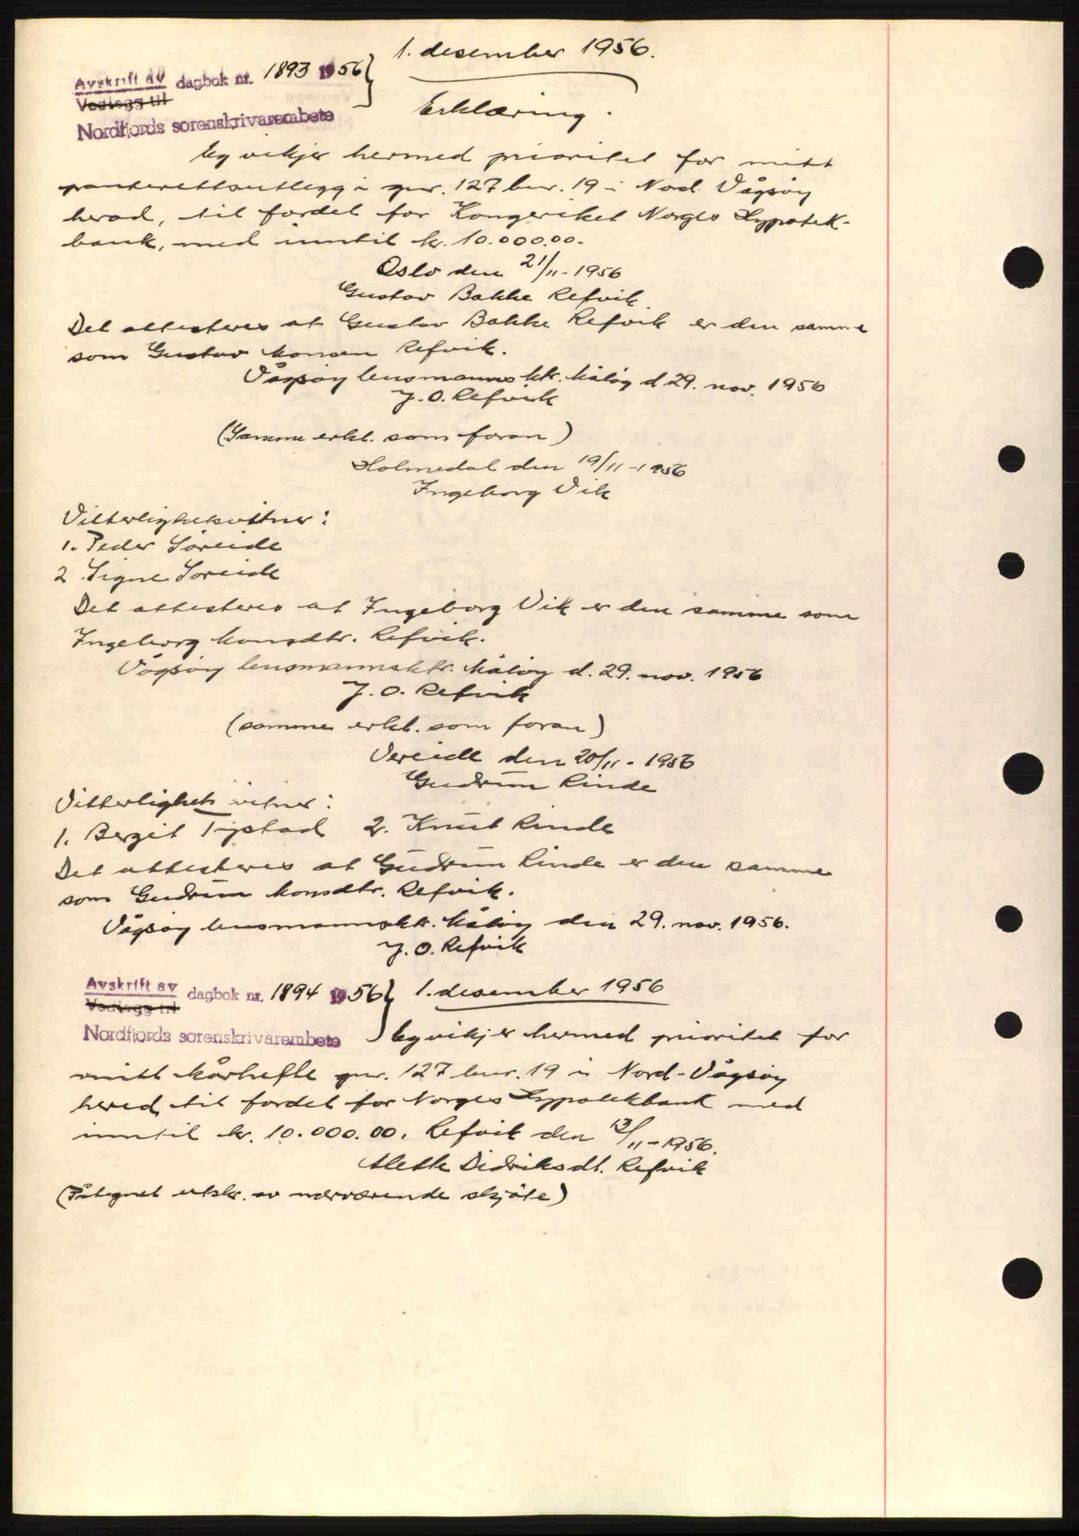 1. desember 1956.
Avskrift av dagbok nr. 1893 1956
Vedlegg til
Nordfjords sorenskrivarembete
Erklæring.
Eg vikjer hermed prioritet for mitt
panterettsutlegg i gnr. 127 bnr. 19 i Nord Vågsøy
herad, til fordel for Kongeriket Norges Hypotek-
bank, med inntil kr. 10.000.00.
Oslo den 21/11-1956
Gustav Bakke Refvik.
Det attesteres at Gustav Bakke Refvik er den samme
som Gustav Monsen Refvik.
Vågsøy lensmannskt. Måløy d 29. nov. 1956
J. O. Refvik
(Samme erkl. som foran)
Holmedal den 19/11-1956
Ingeborg Vik
Vitterlighetsvitner:
1. Peder Søreide
2 Signe Søreide
Det attesteres at Ingeborg Vik er den samme som
Ingeborg Monsdtr. Refvik.
Vågsøy lensmannsktr. Måløy d. 29. nov. 1956
J. O. Refvik
(samme erkl. som foran)
Vereide den 20/11-1956
Gudrun Rinde
Vitterlighets vitner:
1. Bergit Tystad 2. Knut Rinde
Det attesteres at Gudrun Rinde er den samme
som Gudrun Monsdtr. Refvik.
Vågsøy lensmannskt. Måløy den 29. nov. 1956.
J. O. Refvik
Avskrift av dagbok nr. 1894 1956 1. desember 1956
Vedlegg til
Nordfjords sorenskrivarembete Eg vikjer hermed prioritet for
mitt kårhefte gnr. 127 bnr. 19 i Nord-Vågsøy
hered, til fordel for Norges Hypotekbank med
inntil kr. 10.000.00. Refvik den 13/11-1956.
Alette Didriksdt. Refvik
(Påtegnet utskr. av nærværende skjøte)